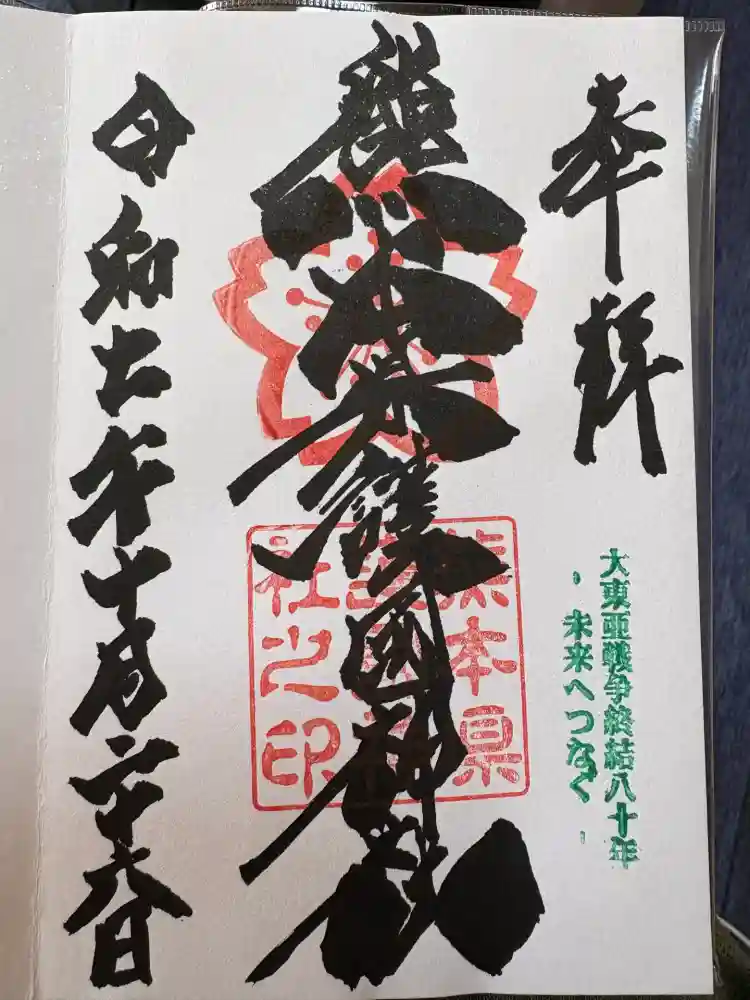 奉拝
大東亜戦争終結八十年
- 未来へつなぐ -
熊本県護國神社
熊本県
護國神
社之印
令和七年十月二十六日